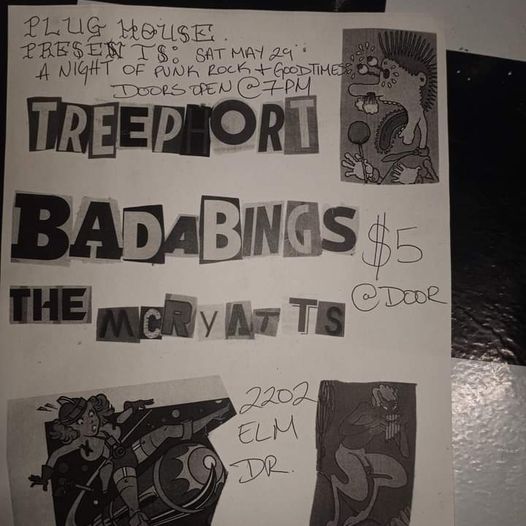 PLUG HOUSE
PRESENTS: SAT MAY 29
A NIGHT OF PUNK ROCK + GOODTIMES
DOORS OPEN @ 7PM
TREEPHORT
BADABINGS
$5
@ DOOR
THE MCRYATTS
2202
ELM
DR.